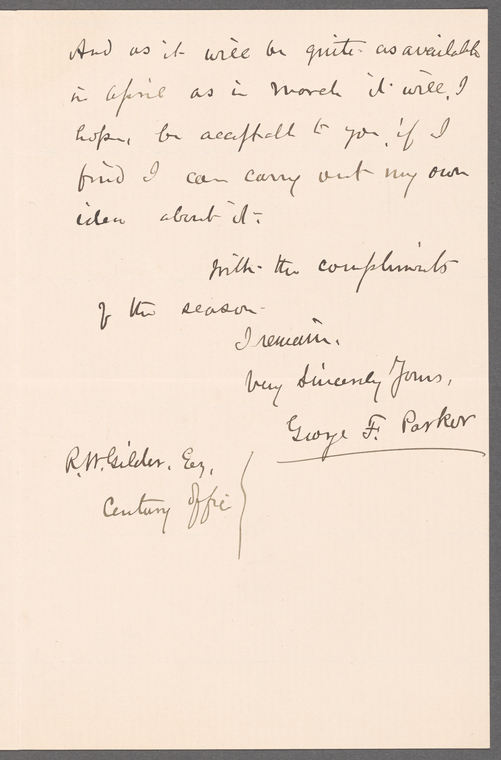 And as it will be quite as available
in April as in March it will, I
hope, be acceptable to you, if I
find I can carry out my own
idea about it.
With the compliments
of the season
I remain,
Very Sincerely Yours,
George F. Parker
R. W. Gilder, Esq,
Century Office